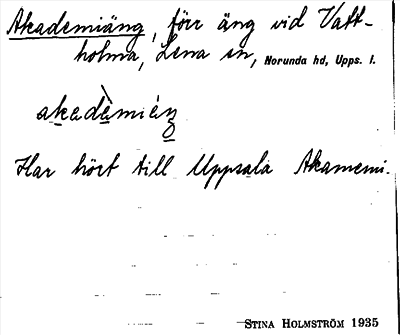 Akademiäng, förr äng vid Vatt-
holma, Lena sn, Norunda hd, Upps. l.
Har hört till Uppsala Akamemi.
STINA HOLMSTRÖM 1935